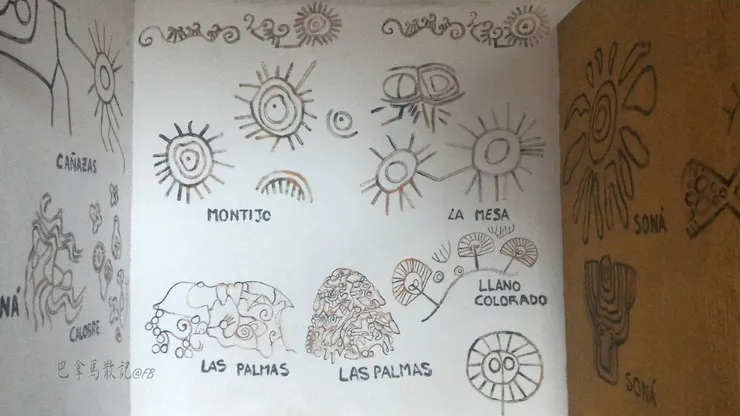 CAÑAZAS
MONTIJO
LA MESA
SONÁ
NÁ
CALOBRE
LLANO
COLORADO
LAS PALMAS
LAS PALMAS
SONÁ
巴拿馬散記@FB